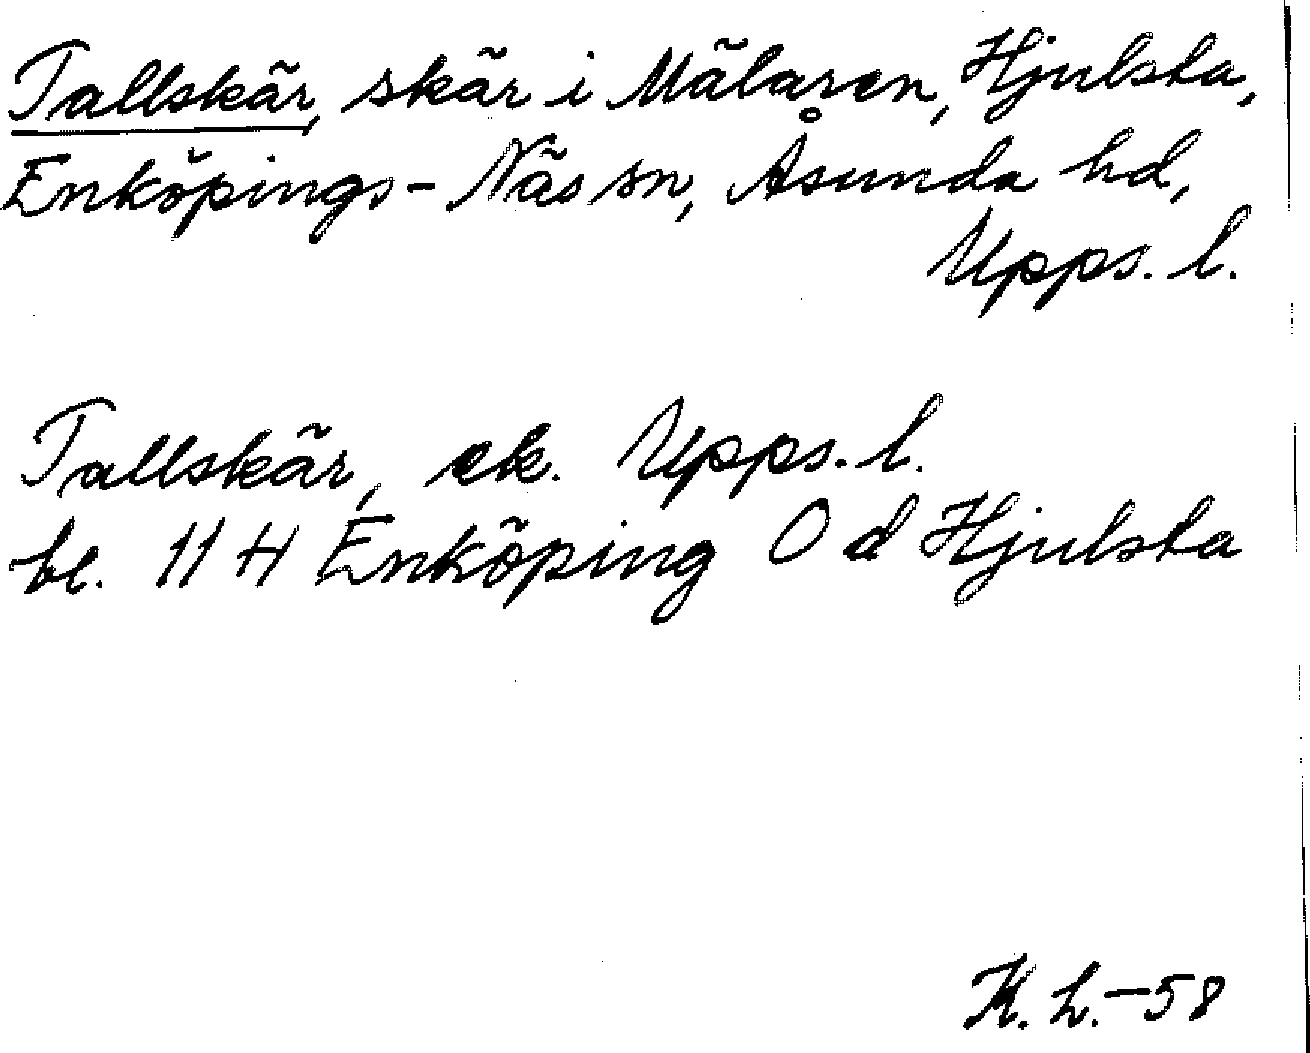 Tallskär, skär i Mälaren, Hjulsta,
Enköpings-Näs sn, Åsunda hd,
Upps. l.
Tallskär, ek. Upps. l.
bl. 11 H Enköping O d Hjulsta
K. L. -58